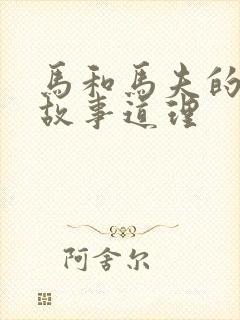 馬和馬夫的
故事道理
阿舍尔